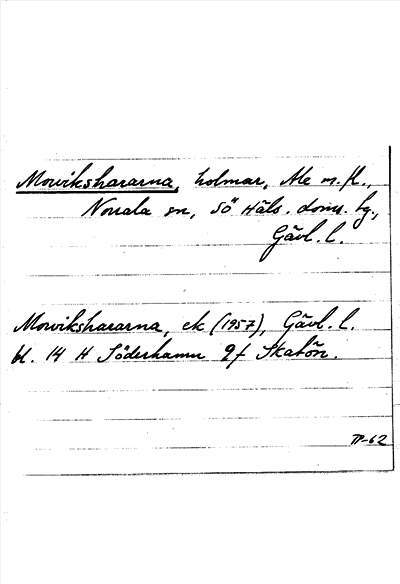 Morvikshararna, holmar, Ale m. fl.,
Norrala sn, Sö Häls. doms. hg.,
Gävl. l.
Morvikshararna, ek (1957), Gävl. l.
bl. 14 H Söderhamn 9f Skatön.
TP-62